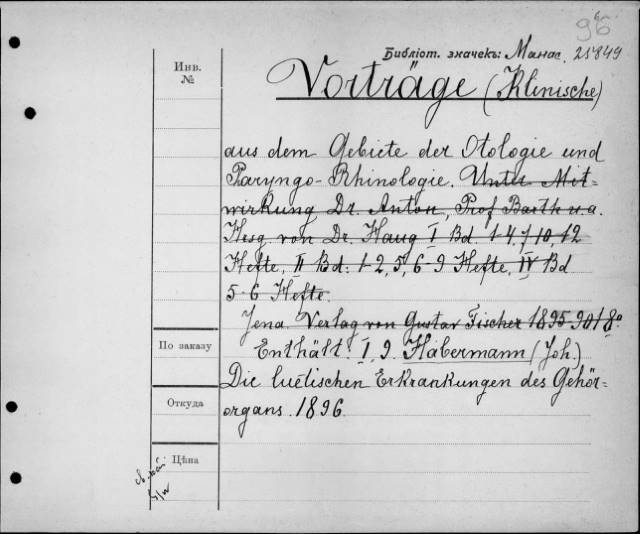 96
Библіот. значекъ: Манас. 25849
Инв.
№
Vorträge (Klinische)
aus dem Gebiete der Otologie und
Pharyngo-Rhinologie. Unter Mit=
wirkung Dr. Anton, Prof Barth u.a.
Hesg. von Dr. Haug I Bd. 1-4, 7, 10, 12
Hefte, II Bd: 1-2, 5, 6-9 Hefte, IV Bd
5-6 Hefte.
Jena. Verlag von Gustav Fischer 1895-901 8°
По заказу
Enthält: I, 9. Habermann (Joh.)
Die luëtischen Erkrankungen des Gehör=
Откуда
organs. 1896
Цѣна